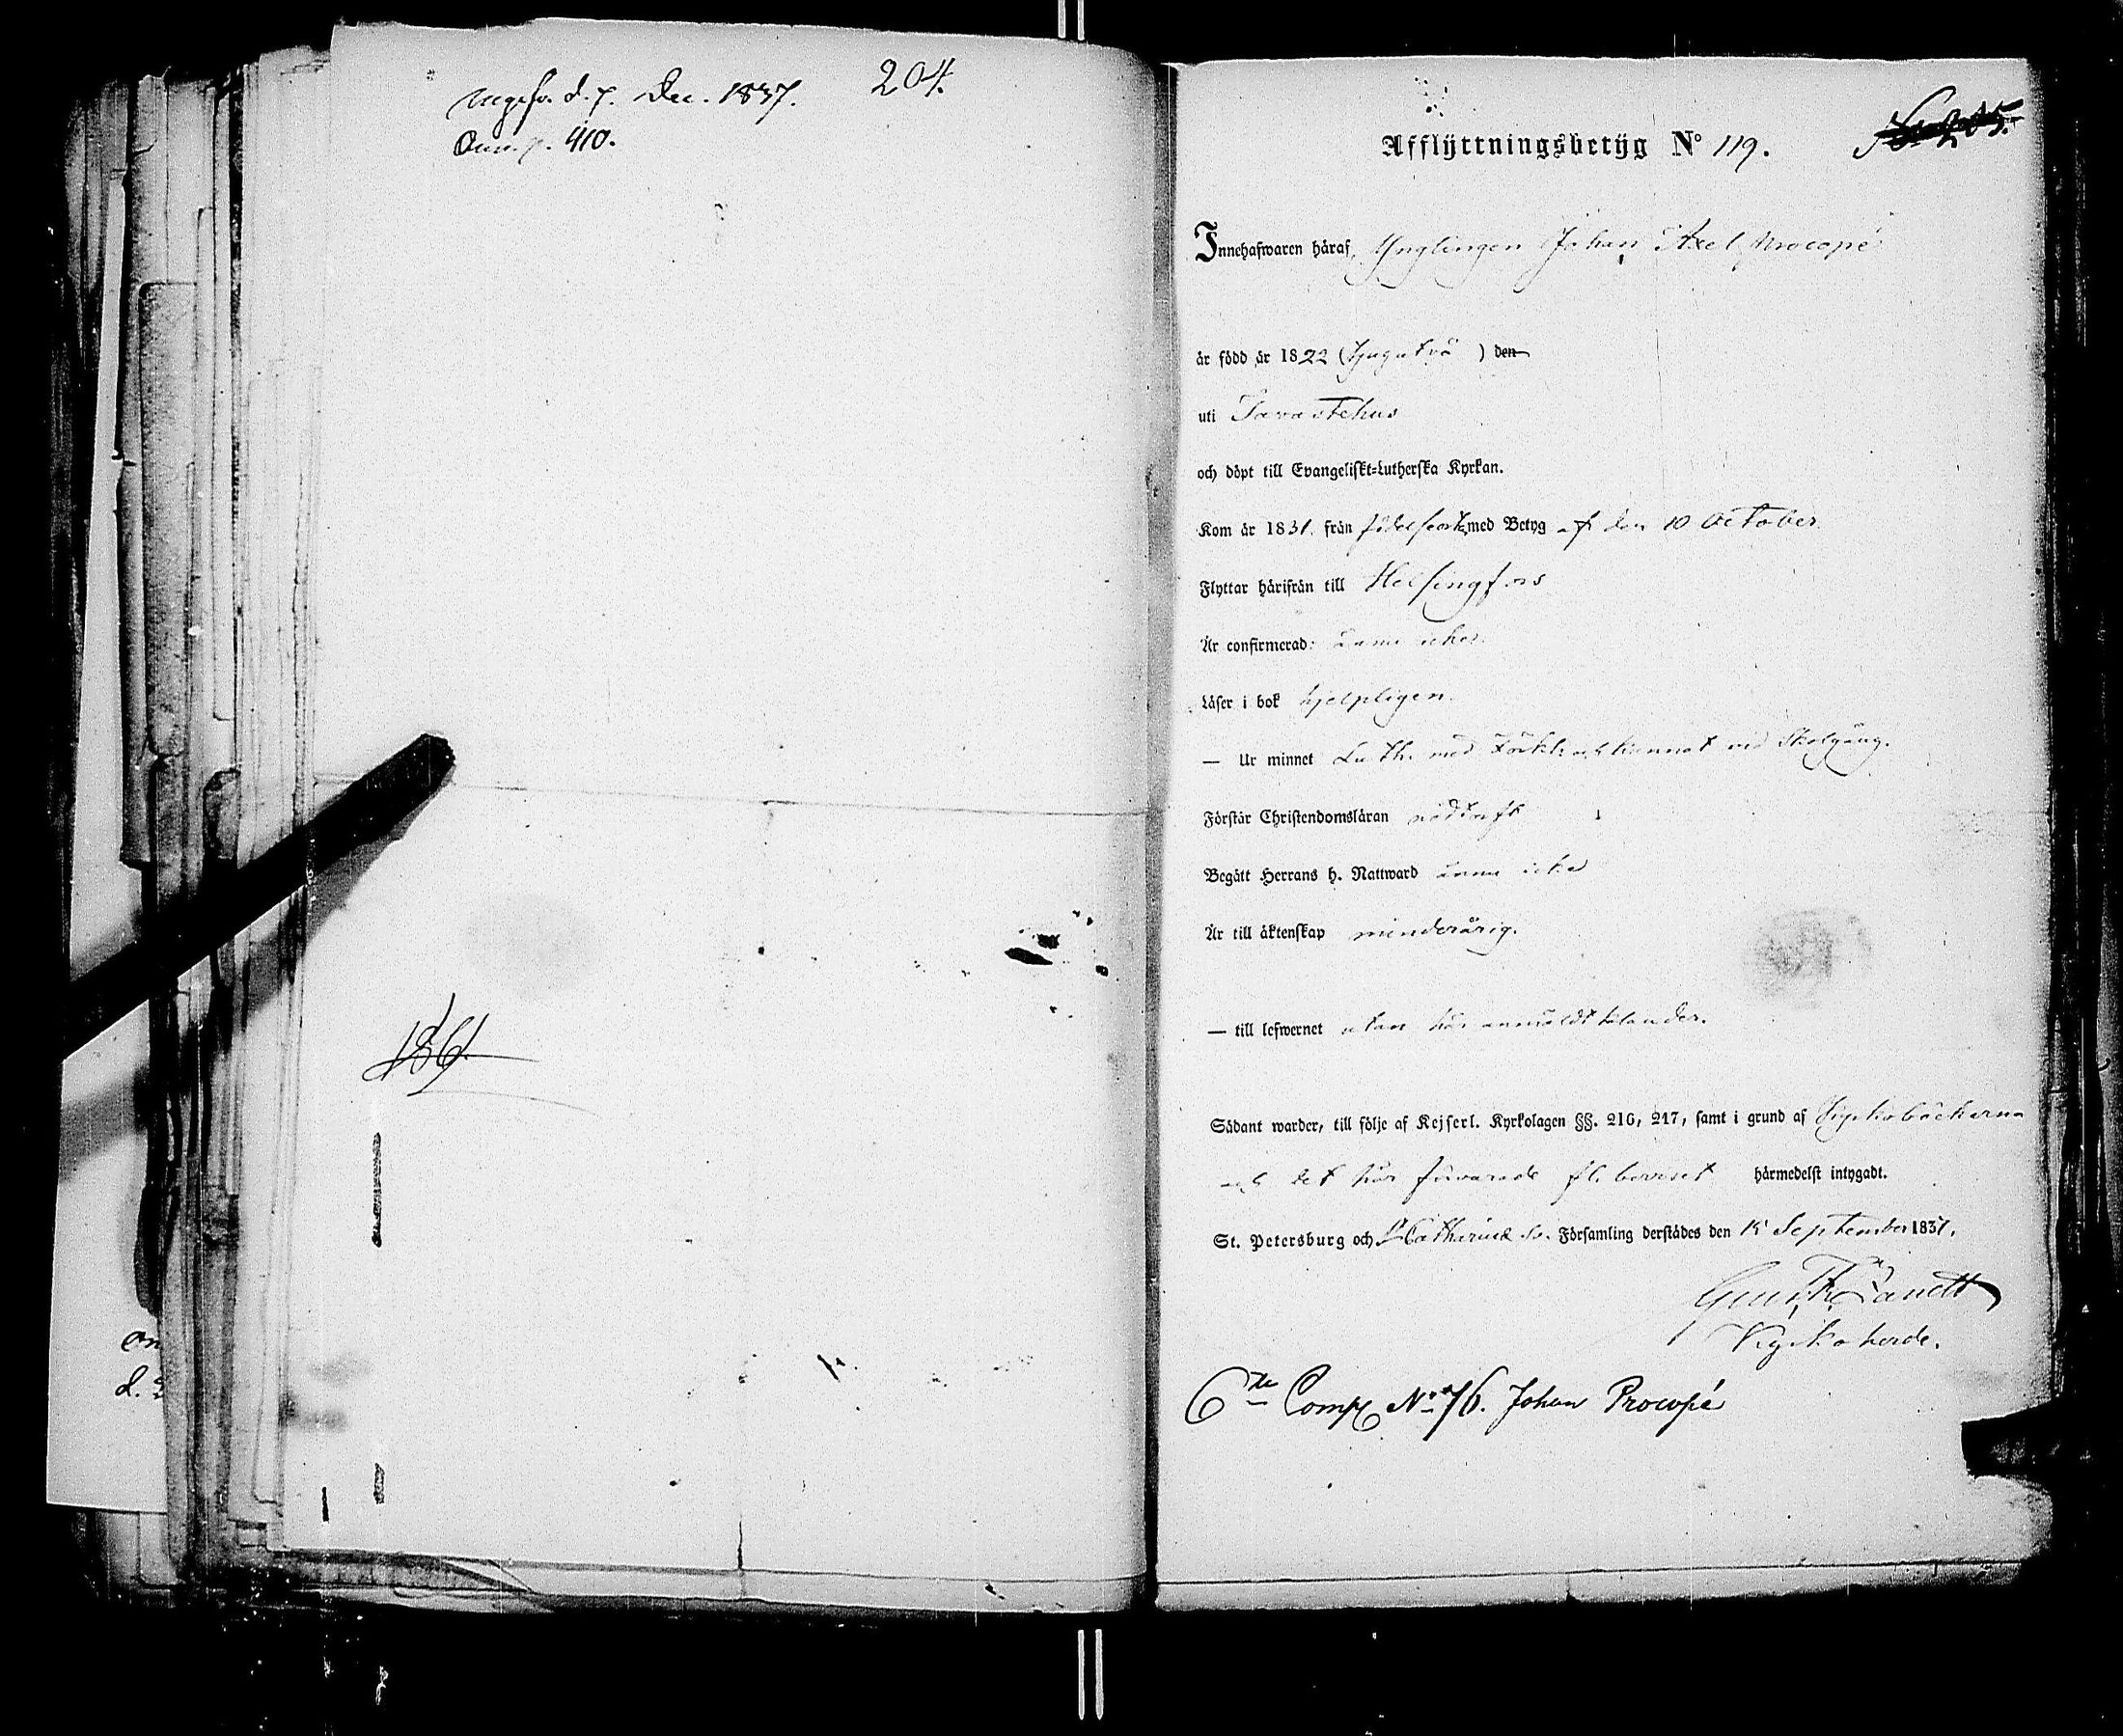 204.
d. 7. Dec. 1837.
p. 410.
186.
Afflÿttningsbetÿg No 119.
Innehafwaren häraf, Ynglingen Johan Axel Procopé
är född år 1822 (tjugutvå) den
uti Tavastehus
och döpt till Evangeliskt=Lutherska Kyrkan.
Kom år 1831. från födelseort med Betyg af den 10 October
Flyttar härifrån till Helsingfors
Är confirmerad: ännu icke.
Läser i bok hjelpligen.
— Ur minnet Luth. med vid Skolgång.
Förstår Christendomsläran nödtorft
Begått Herrans h. Nattward ännu icke
Är till äktenskap minderårig.
— till lefwernet utan här anmäldt klander.
Sådant warder, till följe af Kejserl. Kyrkolagen §§. 216, 247, samt i grund af Kyrkoböckerna
och det här förvarade fl. beviset härmedelst intygadt.
St. Petersburg och St Catharinæ Sv. Församling derstädes den 15 September 1837.
Kyrkoherde.
6te Comp No 76. Johan Procopé